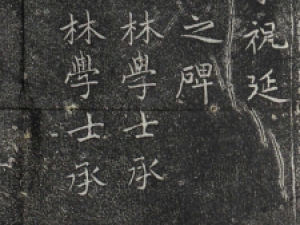 祝延
之碑
林學士承
林學士承